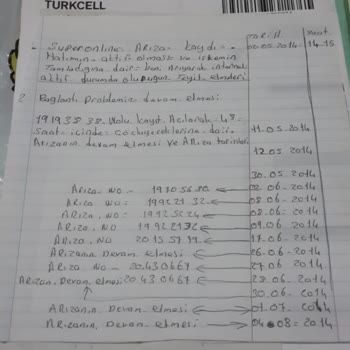 TURKCELL
TARİH Saat
- Superonline Arıza Kaydı =- 00.05.2014 - 14-15
Hattımın aktif olması ve işlemin
Tamamlığına dair
aktif durumda olduğunun Teyit etmeleri
2 Bağlantı Problemin devam etmesi
191938 38. Nolu kayıt. Açılarak 48=
Saat içinde çözüleceklerine dair. 11.05 2014
Arızanın devam etmesi ve Arıza 12.05 2014
30.05 2014
Arıza. No = 19.20 5680 02.06-2014
Arıza No = 1992 21 32 08 06-2014
Arıza. No = 1992 5624 08.06=2014
Arıza. NO 19922132 09.06-2014
Arıza. NO 20 15 57 19. 17.06-2014
Arızanın Devam etmesi 26-06-2014
Arıza No - 20.430667 27 06 2014
Arızanın. Devam. etmesi 20 43 0667 28.06-2014
30.06 2014
Arızanın. Devam etmesi 01.07 2014
Arızanın. Devam etmesi 04.08=2014